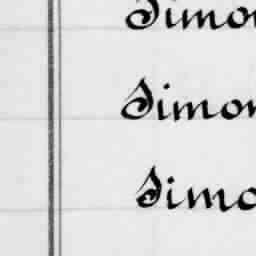 Simon
Simon
Simo